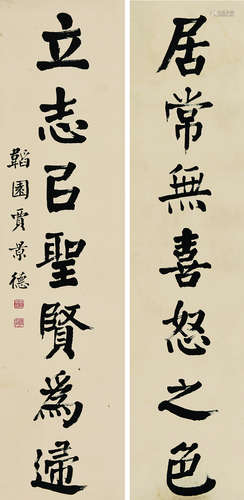 居常無喜怒之色
立志以聖賢為歸
韜園賈景德